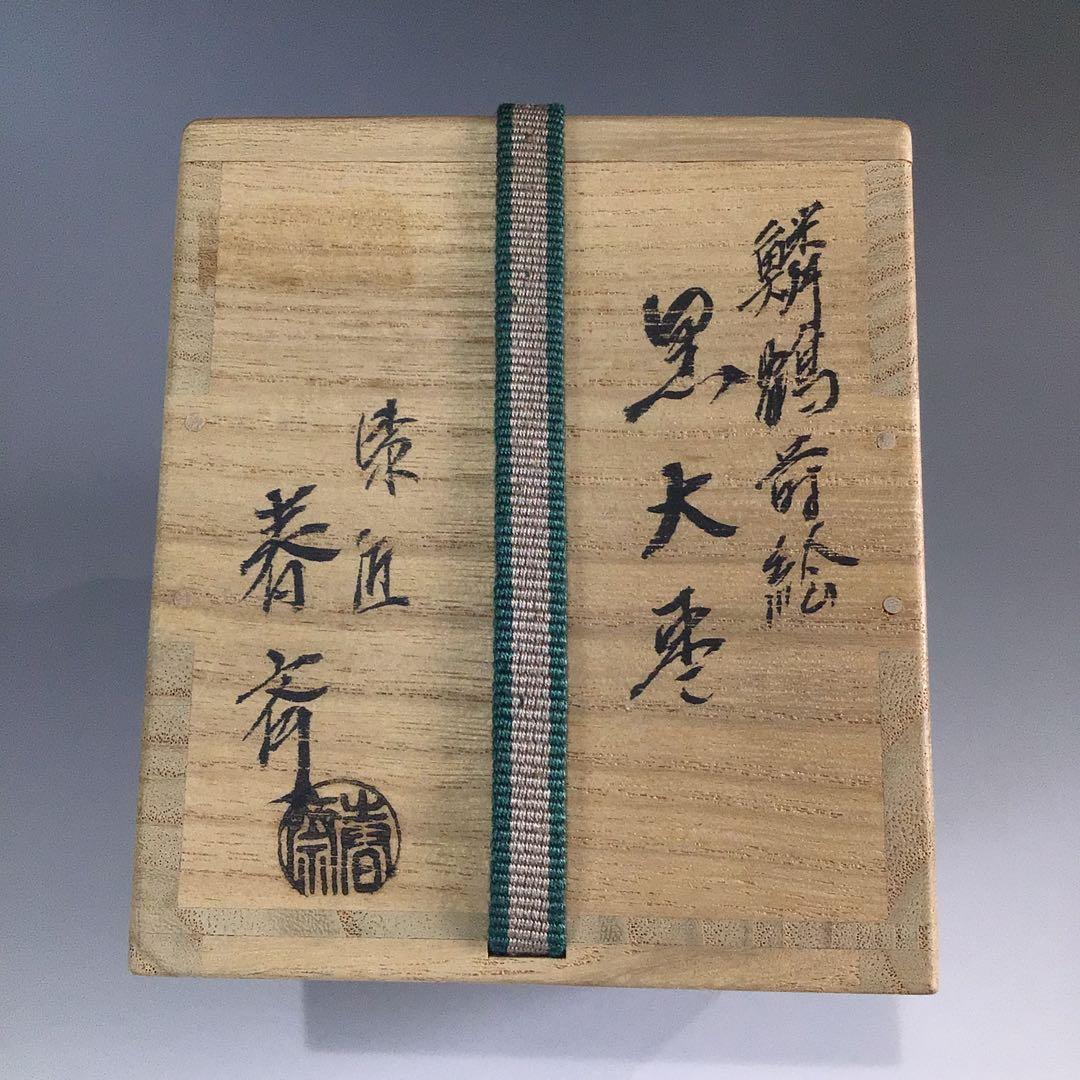 鱗鶴蒔絵
黒大棗
漆匠
春斎
春齋